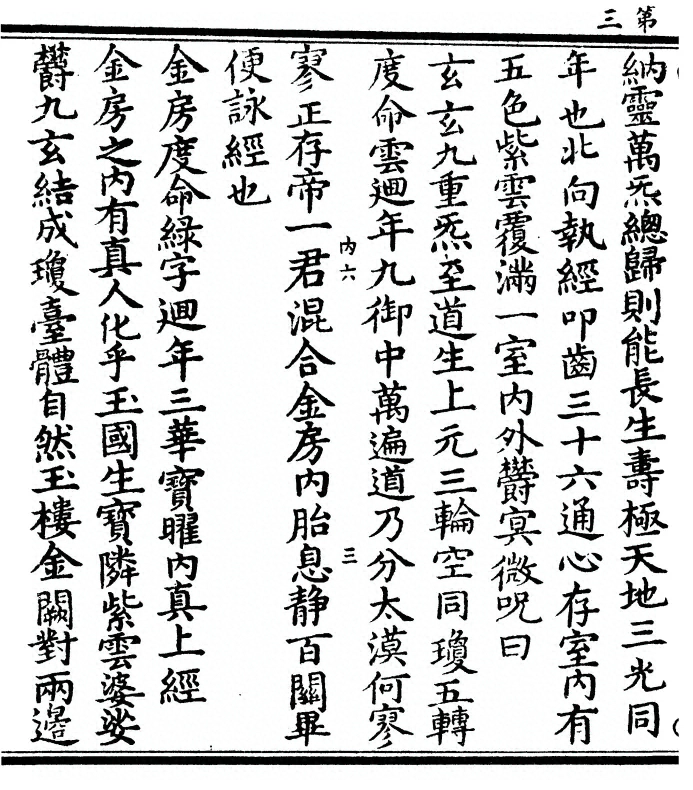 第三
納靈萬炁總歸則能長生壽極天地三光同
年也北向執經叩齒三十六通心存室內有
五色紫雲覆滿一室內外欝冥微呪曰
玄玄九重炁至道生上元三輪空同瓊五轉
度命雲迴年九御中萬遍道乃分太漠何寥
內六
三
寥正存帝一君混合金房內胎息靜百關畢
便詠經也
金房度命綠字迴年三華寶曜內真上經
金房之內有真人化乎玉國生寶隣紫雲婆娑
欝九玄結成瓊臺體自然玉樓金闕對兩邊